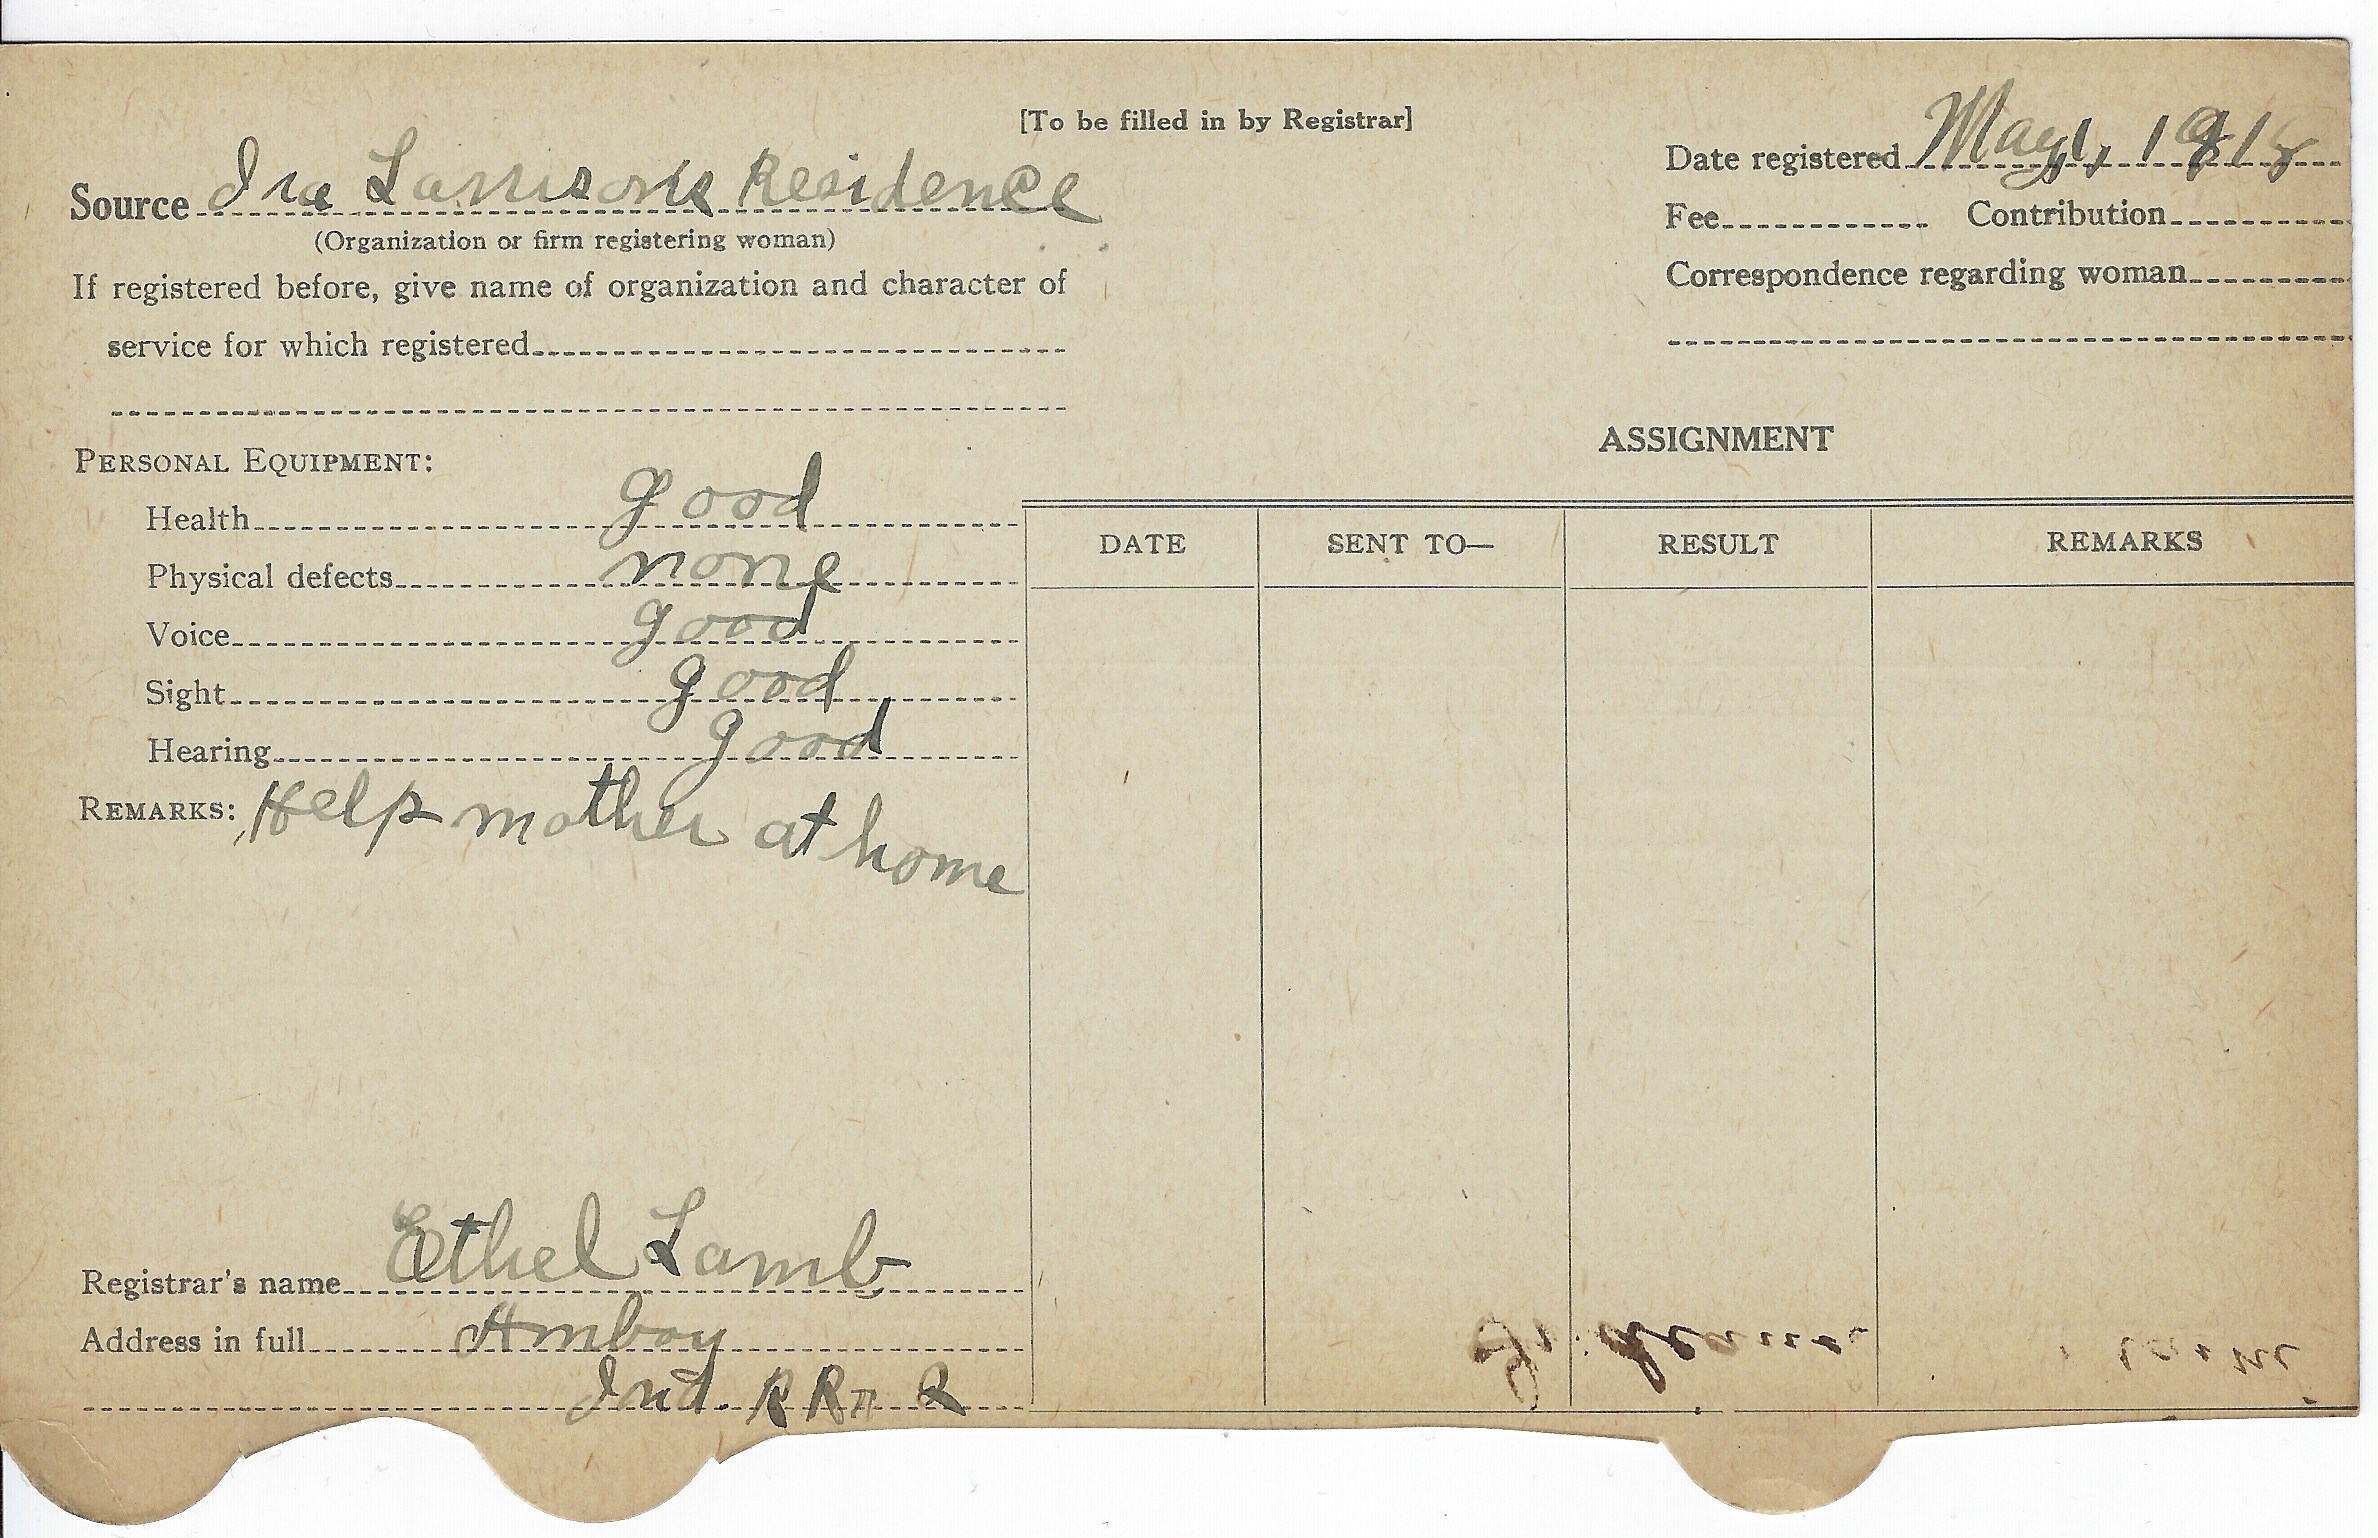 [To be filled in by Registrar]
Source Ira Lamsons Residence
(Organization or firm registering woman)
If registered before, give name of organization and character of
service for which registered
Date registered May 1, 1918
Fee Contribution
Correspondence regarding woman
PERSONAL EQUIPMENT:
Health good
Physical defects none
Voice good
Sight good
Hearing good
REMARKS: Help mother at home
Registrar's name Ethel Lamb
Address in full Amboy
Ind. R R # 2
ASSIGNMENT
DATE SENT TO— RESULT REMARKS